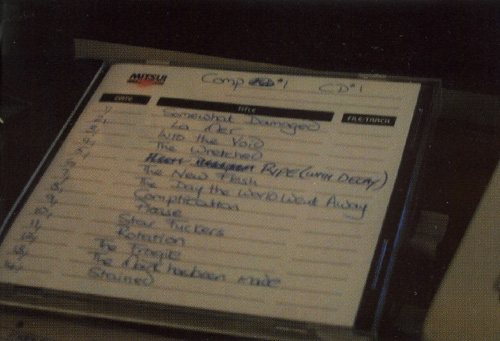 MITSUI
Comp #1 CD#1
DATE TITLE FILE/TRACK
1, Somewhat Damaged
2, La Mer
3, Into the Void
4, The Wretched
5, RIPE (WITH DECAY)
The New Flesh
The Day the World Went Away
Complication
Please
Star Fuckers
Rotation
The Fragile
The Mark has been made
Stained